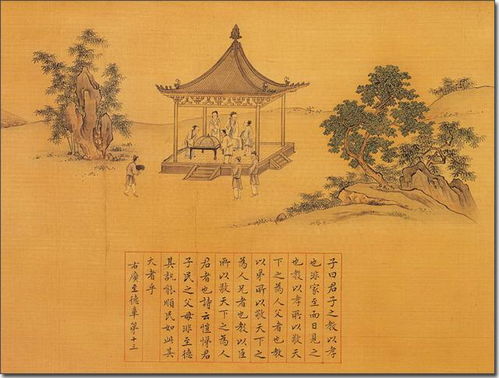 子曰君子之教以孝
也非家至而日見之
也教以孝所以敬天
下之為人父者也教
以弟所以敬天下之
為人兄者也教以臣
所以敬天下之為人
君者也詩云愷悌君
子民之父母非至德
其孰能順民如此其
大者乎
右廣至德章第十三